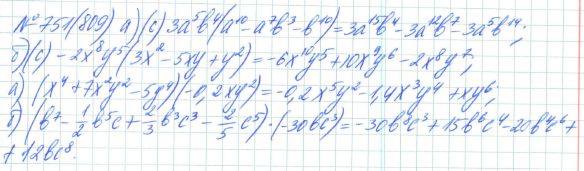 № 751(809) а)(с) 3a⁵b⁴(a¹⁰-a⁷b³-b¹⁰)=3a¹⁵b⁴-3a¹²b⁷-3a⁵b¹⁴;
б)(с) -2x⁸y⁵(3x²-5xy+y²)=-6x¹⁰y⁵+10x⁹y⁶-2x⁸y⁷;
а) (x⁴+7x²y²-5y⁴)(-0,2xy²)=-0,2x⁵y²-1,4x³y⁴+xy⁶;
б) (b⁷-1/2b⁵c+2/3b³c³-2/5c⁵)·(-30bc³)=-30b⁸c³+15b⁶c⁴-20b⁴c⁶+
+12bc⁸.